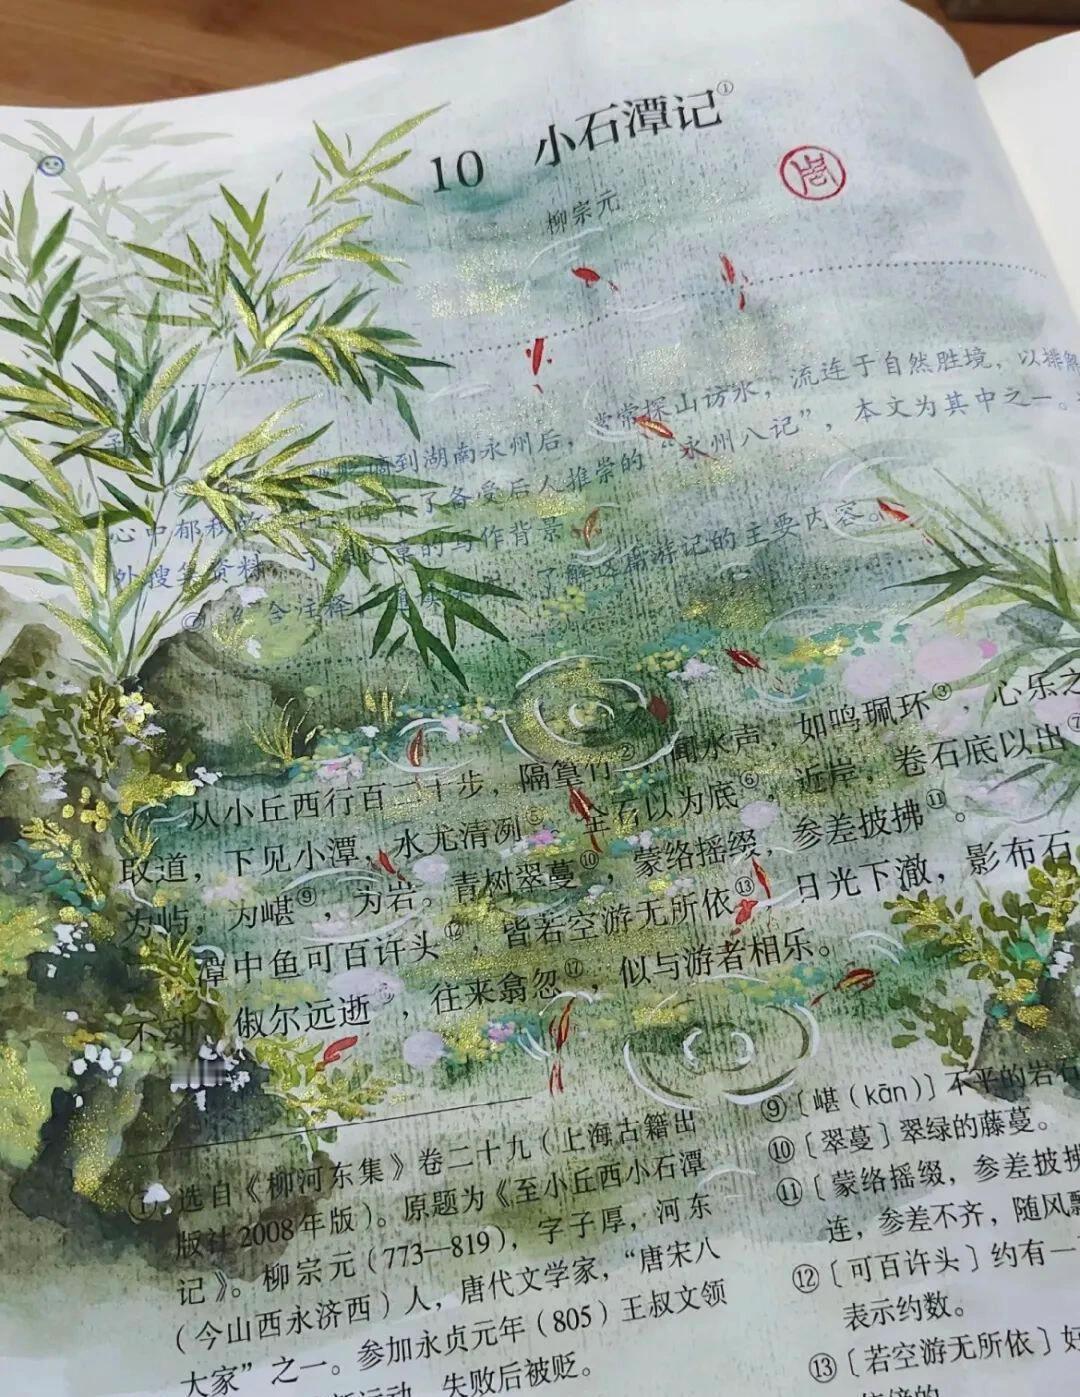 10 小石潭记①
柳宗元
谪到湖南永州后，常常探山访水，流连于自然胜境，以排解
心中郁积的 了备受后人推崇的“永州八记”，本文为其中之一。
外搜集资料 了 文章的写作背景
合注释 了解这篇游记的主要内容。
从小丘西行百二十步，隔篁竹②，闻水声，如鸣珮环③，心乐之
取道，下见小潭，水尤清冽⑤。全石以为底⑥，近岸，卷石底以出⑦
为屿，为嵁⑨，为岩。青树翠蔓⑩，蒙络摇缀，参差披拂⑪。
潭中鱼可百许头⑫，皆若空游无所依⑬，日光下澈，影布石
不动，俶尔远逝，往来翕忽⑰，似与游者相乐。
① 选自《柳河东集》卷二十九（上海古籍出
版社2008年版）。原题为《至小丘西小石潭
记》。柳宗元（773—819），字子厚，河东
（今山西永济西）人，唐代文学家，“唐宋八
大家”之一。参加永贞元年（805）王叔文领
运动，失败后被贬。
⑨〔嵁（kān）〕不平的岩石
⑩〔翠蔓〕翠绿的藤蔓。
⑪〔蒙络摇缀，参差披拂
连，参差不齐，随风飘
⑫〔可百许头〕约有一
表示约数。
⑬〔若空游无所依〕好